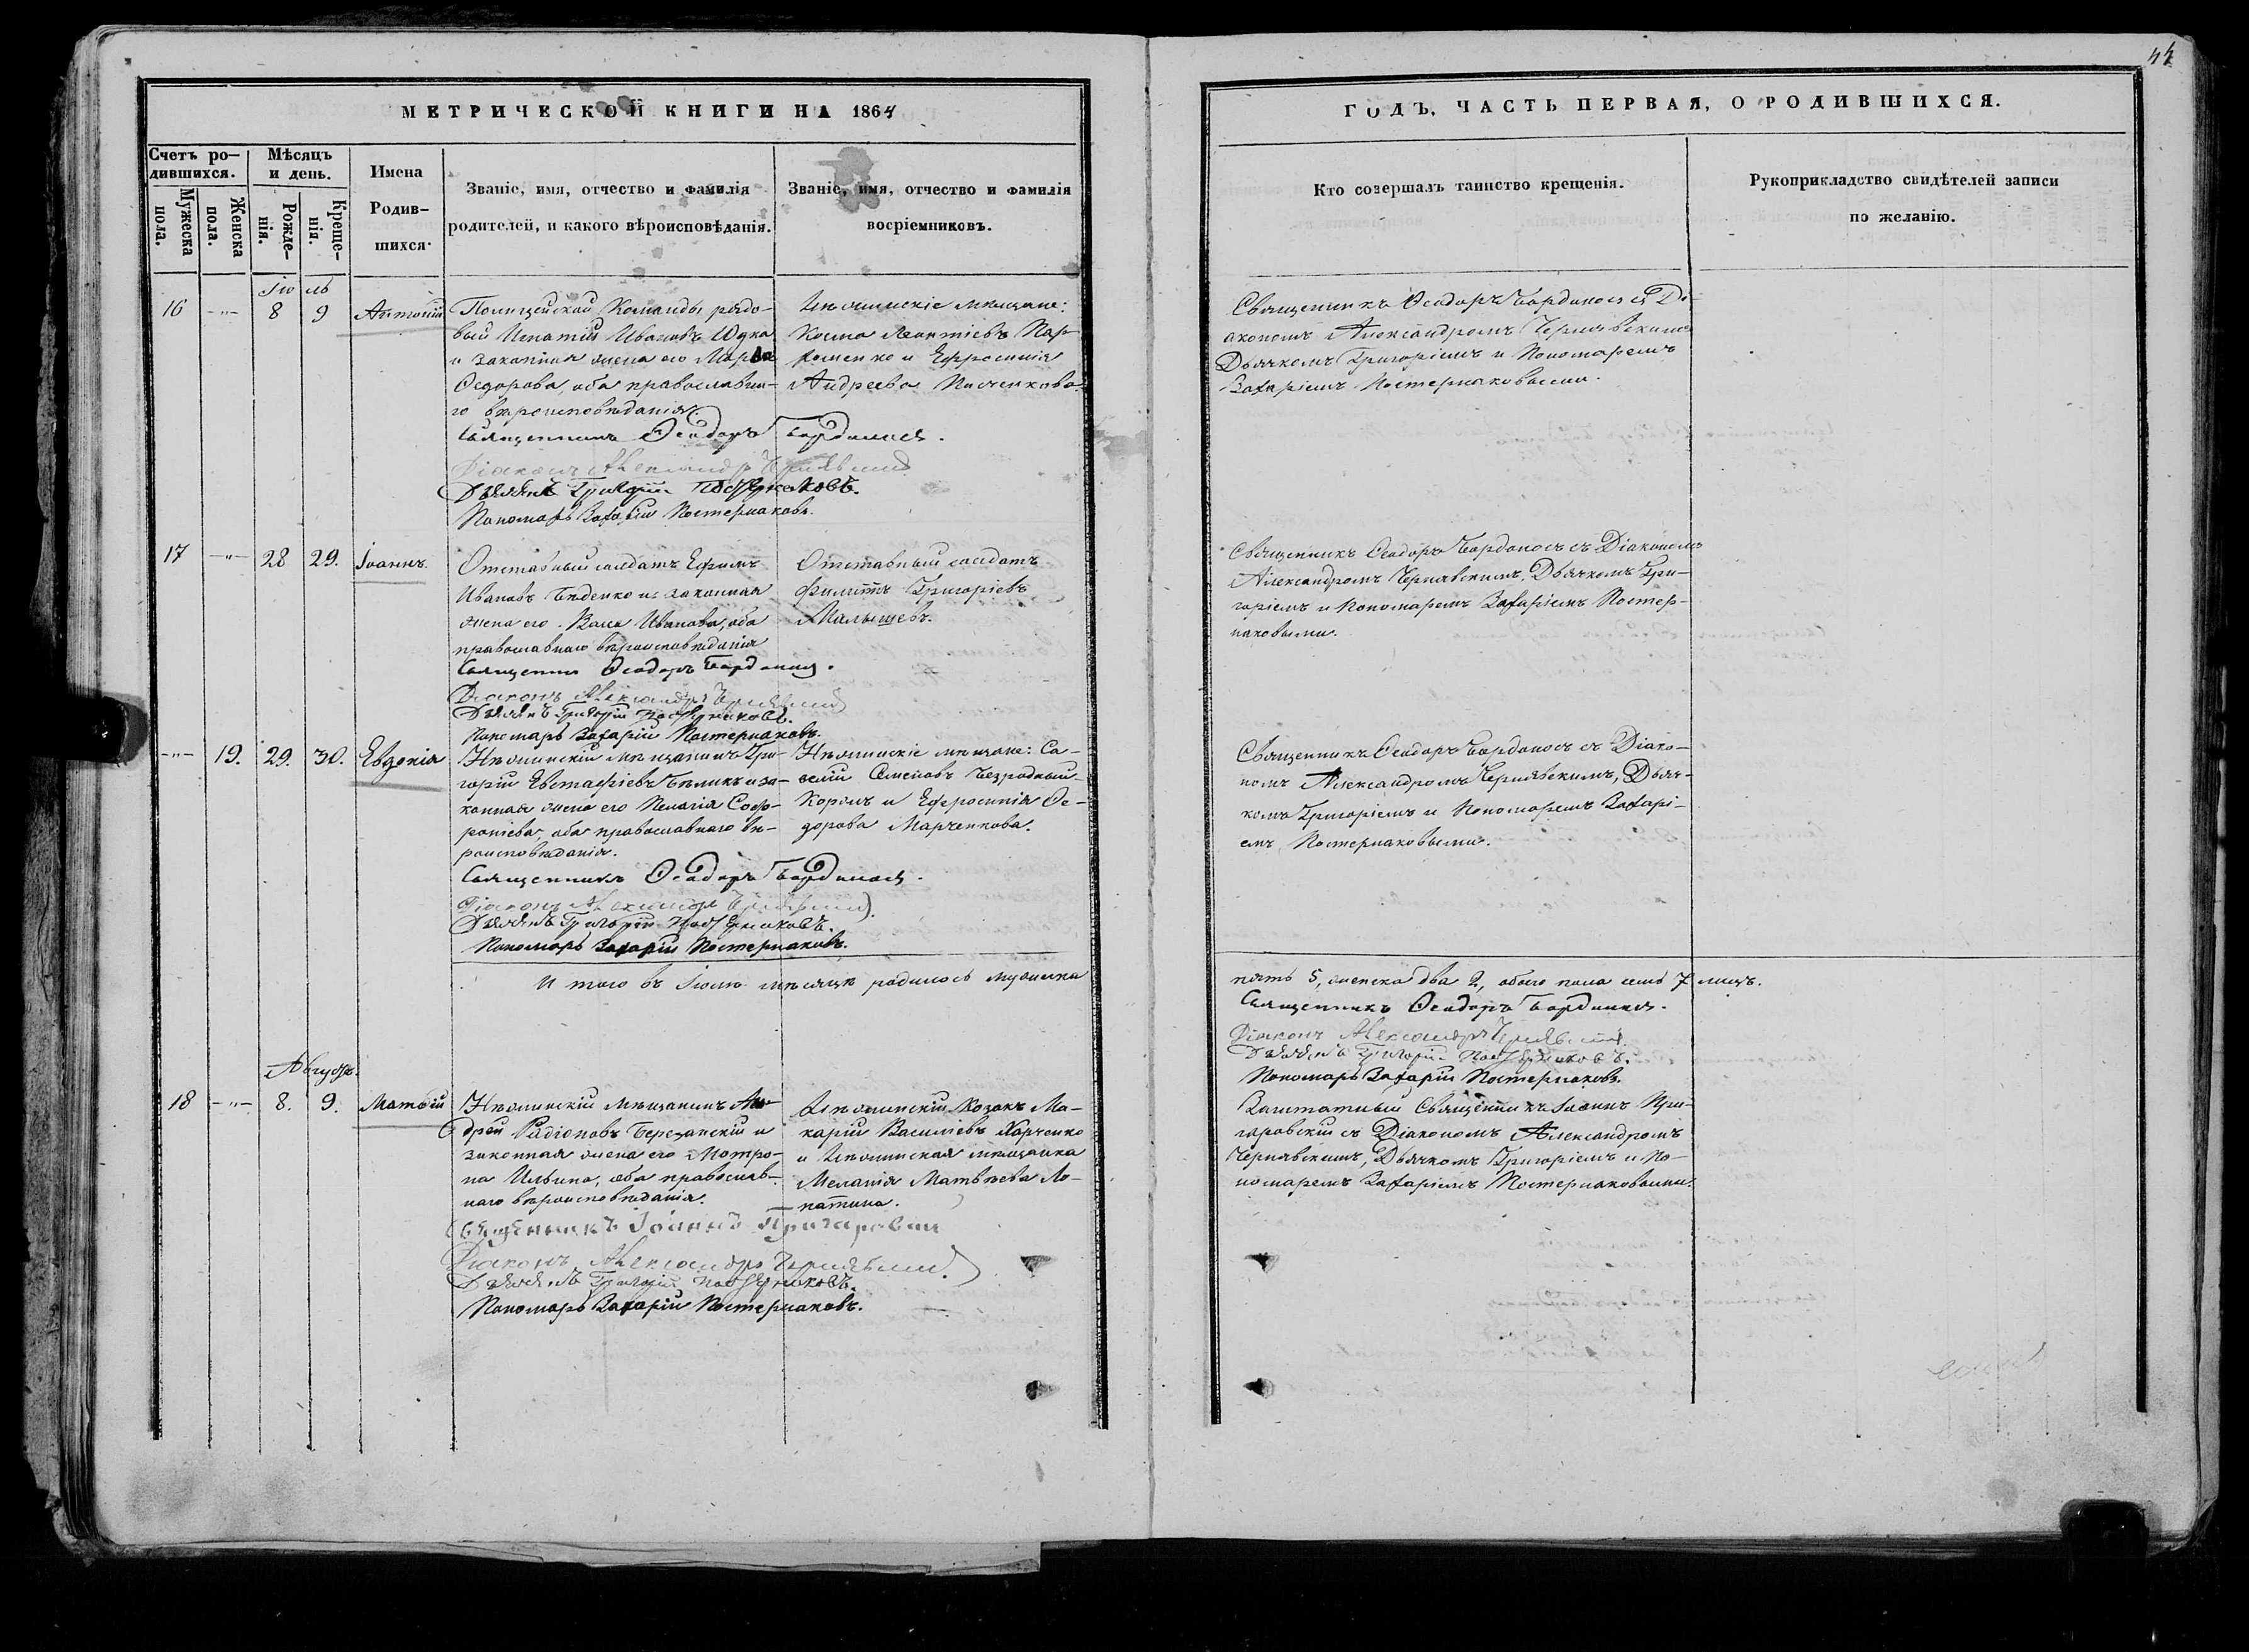 44
МЕТРИЧЕСКОЙ КНИГИ НА 1864
ГОДЪ, ЧАСТЬ ПЕРВАЯ, О РОДИВШИХСЯ.
Счетъ ро-
дившихся.
Мужеска
пола.
Женска
пола.
Мѣсяцъ
и день.
Рожде-
нія.
Креще-
нія.
Имена
Родив-
шихся.
Званіе, имя, отчество и фамилія
родителей, и какого вѣроисповѣданія.
Званіе, имя, отчество и фамилія
воспріемниковъ.
Кто совершалъ таинство крещенія.
Рукоприкладство свидѣтелей записи
по желанію.
Іюль
16 -"- 8 9 Антоній
Полицейской Команды рядо-
вый Игнатій Ивановъ Юдка
и законная жена его Марѳа
Ѳедорова, оба православна-
го вѣроисповѣданія.
Священникъ Ѳеодоръ Бардоносъ.
Діаконъ Александръ Чернявскій
Дьячекъ Григорій Постернаковъ.
Пономарь Захарій Постернаковъ.
Нѣжинскіе мѣщане:
Косма Леонтіевъ Пар-
хоменко и Ефросинія
Андреева
Священникъ Ѳеодоръ Бардоносъ съ Ді-
акономъ Александромъ Чернявскимъ
Дьячкомъ Григоріемъ и Пономаремъ
Захаріемъ Постернаковыми.
17 -"- 28 29. Іоаннъ
Отставный солдатъ Ефимъ
Ивановъ Бѣденко и законная
жена его Васса Иванова, оба
православнаго вѣроисповѣданія
Священникъ Ѳеодоръ Бардоносъ.
Діаконъ Александръ Чернявскій
Дьячекъ Григорій Постернаковъ.
Пономарь Захарій Постернаковъ.
Отставный солдатъ
Филиппъ Григоріевъ
Малышевъ.
Священникъ Ѳеодоръ Бардоносъ съ Діакономъ
Александромъ Чернявскимъ, Дьячкомъ Гри-
горіемъ и Пономаремъ Захаріемъ Постер-
наковыми.
-"- 19. 29. 30. Евдокія
Нѣжинскій мѣщанинъ Гри-
горій Евстафіевъ Бѣликъ и за-
конная жена его Пелагія Соф-
роніева, оба православнаго вѣ-
роисповѣданія.
Священникъ Ѳеодоръ Бардоносъ.
Діаконъ Александръ Чернявскій.
Дьячекъ Григорій Постернаковъ.
Пономарь Захарій Постернаковъ.
Нѣжинскіе мѣщане: Са-
Семеновъ Безродный-
и Ефросинія Ѳе-
дорова Марченкова.
Священникъ Ѳеодоръ Бардоносъ съ Діако-
номъ Александромъ Чернявскимъ, Дьяч-
комъ Григоріемъ и Пономаремъ Захарі-
емъ Постернаковыми.
И того въ Іюлѣ мѣсяцѣ родилось мужеска
пять 5, женска два 2, обоего пола семь 7 лицъ.
Священникъ Ѳеодоръ Бардоносъ.
Діаконъ Александръ Чернявскій.
Дьячекъ Григорій Постернаковъ.
Пономарь Захарій Постернаковъ.
Августъ.
18 -"- 8. 9. Матѳій
Нѣжинскій мѣщанинъ Ан-
дрей Радіоновъ Березанскій и
законная жена его Мотро-
на Ильина, оба православ-
наго вѣроисповѣданія.
Священникъ Іоаннъ Пригаровскій
Діаконъ Александръ Чернявскій.
Дьячекъ Григорій Постернаковъ.
Пономарь Захарій Постернаковъ.
Нѣжинскій Козакъ Ма-
карій Василіевъ Харченко
и Нѣжинская мѣщанка
Меланія Матвѣева Ло-
патина.
Заштатный Священникъ Іоаннъ При-
гаровскій съ Діакономъ Александромъ
Чернявскимъ, Дьячкомъ Григоріемъ и По-
номаремъ Захаріемъ Постернаковыми.